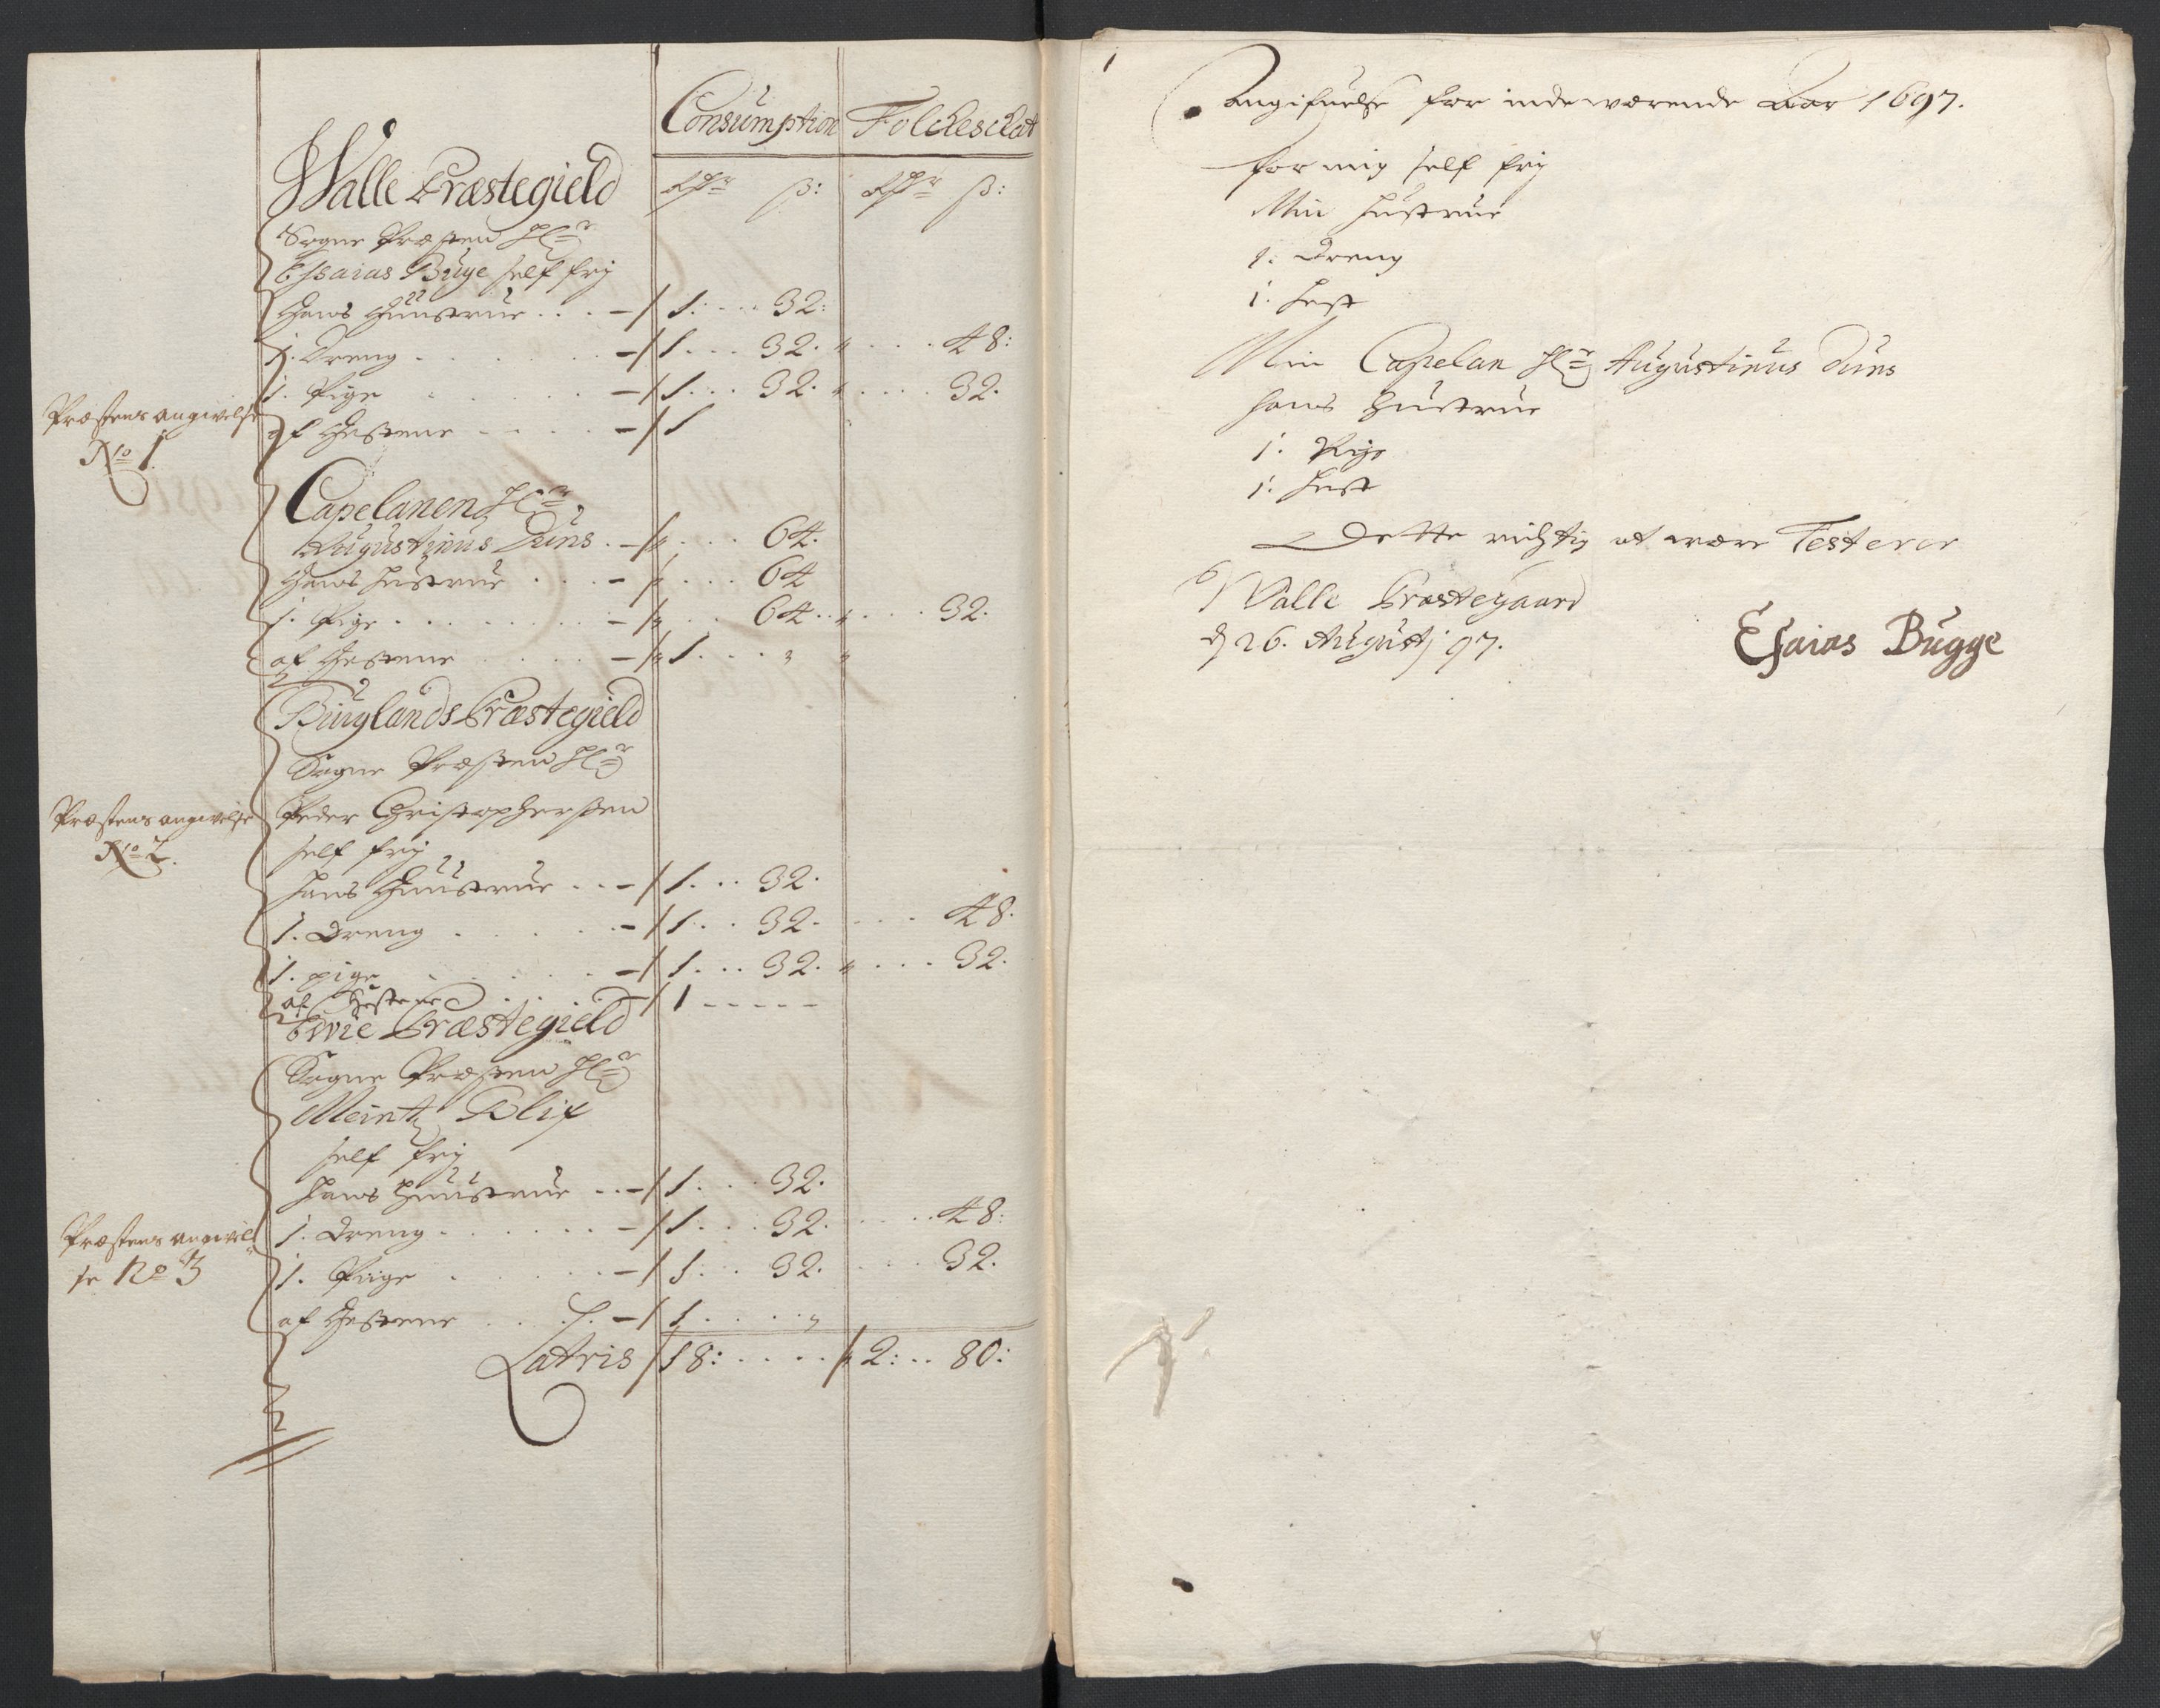 Consumption Folcheschat
Walle Præstegield
Rdr ß: Rdr ß:
Sogne Præsten Hr
Essaias Buge self frj
Hans Huustrue . . . – 1: . . . 32:
1. Dreng . . . – 1 . . . 32. „ . . . 48:
1. Pige . . . – 1 . . . 32. „ . . . 32.
Præstens angivelse
No 1.
af Hestene . . . – 1
Capelanen Hr
Augustinus Duns . – „ . . . 64.
Hans Hustrue . . . – „ . . . 64
1. Pige . . . – „ . . . 64 . . „ . . . 32.
af Hestene . . . – 1 . . . „ „
Buuglands Præstegield
Sogne Præsten Hr
Præstens angivelse
No 2.
Peder Christophersen
self frj
Hans Huustrue . . – 1 . . . 32.
1. Dreng . . . – 1 . . . 32. . . . 48.
1. pige . . . – 1 . . . 32. „ . . . 32.
af Hestene . . . – 1 - - - - -
Ewie Præstegield
Sogne Præsten Hr
Meintz Blix
self frj
Hans Huustrue . . – 1 . . . 32.
Præstens angivel
se No 3
1. Dreng . . . – 1 . . . 32. . . . 48:
1. Piige . . . – 1 . . . 32. . . . 32.
af Hestene . . . – 1 . . . „
Latris 18: . . . . 2: . . 80:
1
Angifuelse for indeværende Aar 1697.
for mig self frj
Min Hustrue
1. Dreng
1. Hest
Min Capelan Hr Augustinus Duns
hans Hustrue
1. Pige
1. Hest
Dette rigtig at være Testerer
Walle Præstegaard
d 26. Augustj 97.
Esaias Bugge